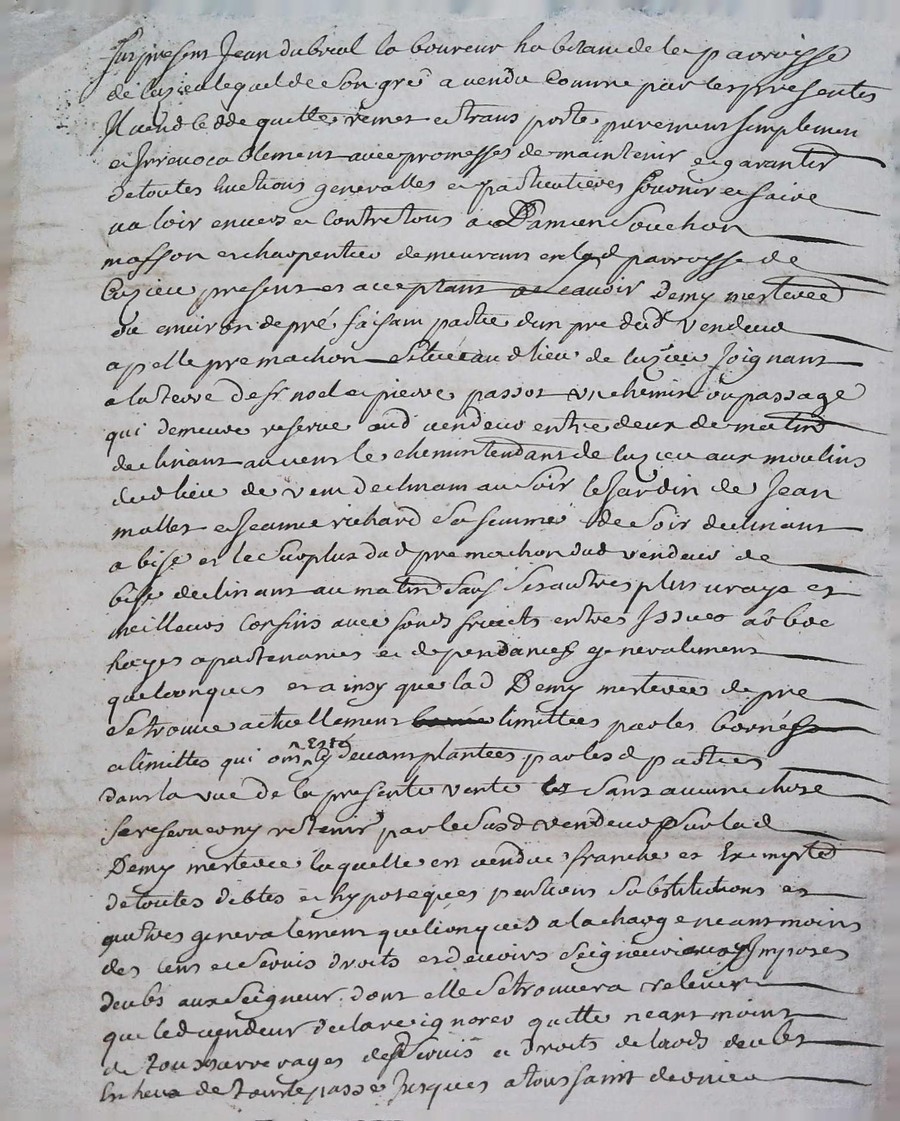 fut present Jean dubrial laboureur habitant de la parroisse
de luzieu lequel de son gré a vendu comme par les presentes
Il vend cedde quitte remet et transporte purement simplemen
et Irrevocablement avec promesses de maintenir et garantir
de toutes Evictions generalles et particulieres fournir et faire
valoir envers et contre tous a Damien Souchon
masson et charpentier demeurant en lad parroisse de
luzieu present et acceptant a scavoir Demy mesterée
ou environ de pré faisant partie d'un pre dud Vendeur
apellé pre machon situé aud lieu de luzieu Joignant
a la terre de fr nod et pierre passot un chemin ou passage
qui demeure reservé aud vendeur entre deux de matin
declinant au vent le chemin tendant de luzieu aux moulins
dud lieu de vent declinant au Soir le Jardin de Jean
mallet et Jeanne richard Sa femme de Soir declinant
a bise et le Surplus dud pre machon dud vendeur de
bise declinant au matin Sauf Ses autres plus vrays et
meilleurs Confins avec fonds fruicts entrées Issues arbre
hayes apartenances et dependances generalement
quelconques et ainsy que lad Demy mesterée de pre
Se trouve actuellement limittée par les bornes
et limittes qui ont Esté cy devant plantées par lesd parties
dans la vue de la presente vente Sans aucune chose
Se reserver ny retenir par le Susd vendeur Sur lad
Demy mesterée laquelle est vendue franche et Exempte
de toutes debtes et hypoteques pentions Substitutions et
autres generalement quelconques a la charge neantmoins
des cens et Servis droits et devoirs Seigneuriaux Imposés
deubs aux Seigneur dont elle Se trouvera relever
que led vendeur declare ignorer quitte neantmoins
de tous arrerages desd Servis et droits de laods deubs
En heux de tout le passé Jusques a toussaint dernier